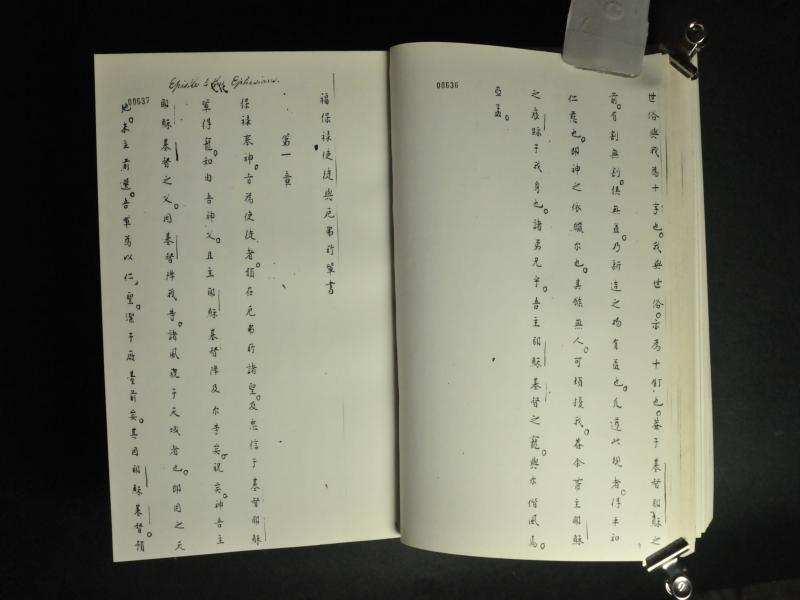 00636
世俗與我為十字也。我與世俗。亦為十釘也。蓋于基督耶穌之
前。有割無割。俱無益。乃新造之物有益也。凡遵此規者。得平和
仁慈也。即神之依臘尔也。其餘無人。可煩擾我。蓋余帶主耶穌
之痕跡于我身也。諸弟兄乎。吾主耶穌基督之寵。與尔偕風焉。
亞孟。
Epistle to the Ephesians.
00637
福保祿使徒與厄弗所輩書
第一章
保祿奉神。旨為使徒者。頓在厄弗所諸聖。及忠信于基督耶穌
輩得寵。和由吾神父。且主耶穌基督降及尔等矣。祝矣。神吾主
耶穌基督之父。因基督降我等。諸風窥于天域者也。即因之天
地。未主前選。吾輩為以仁。聖。潔于厥臺前矣。其因耶穌基督預